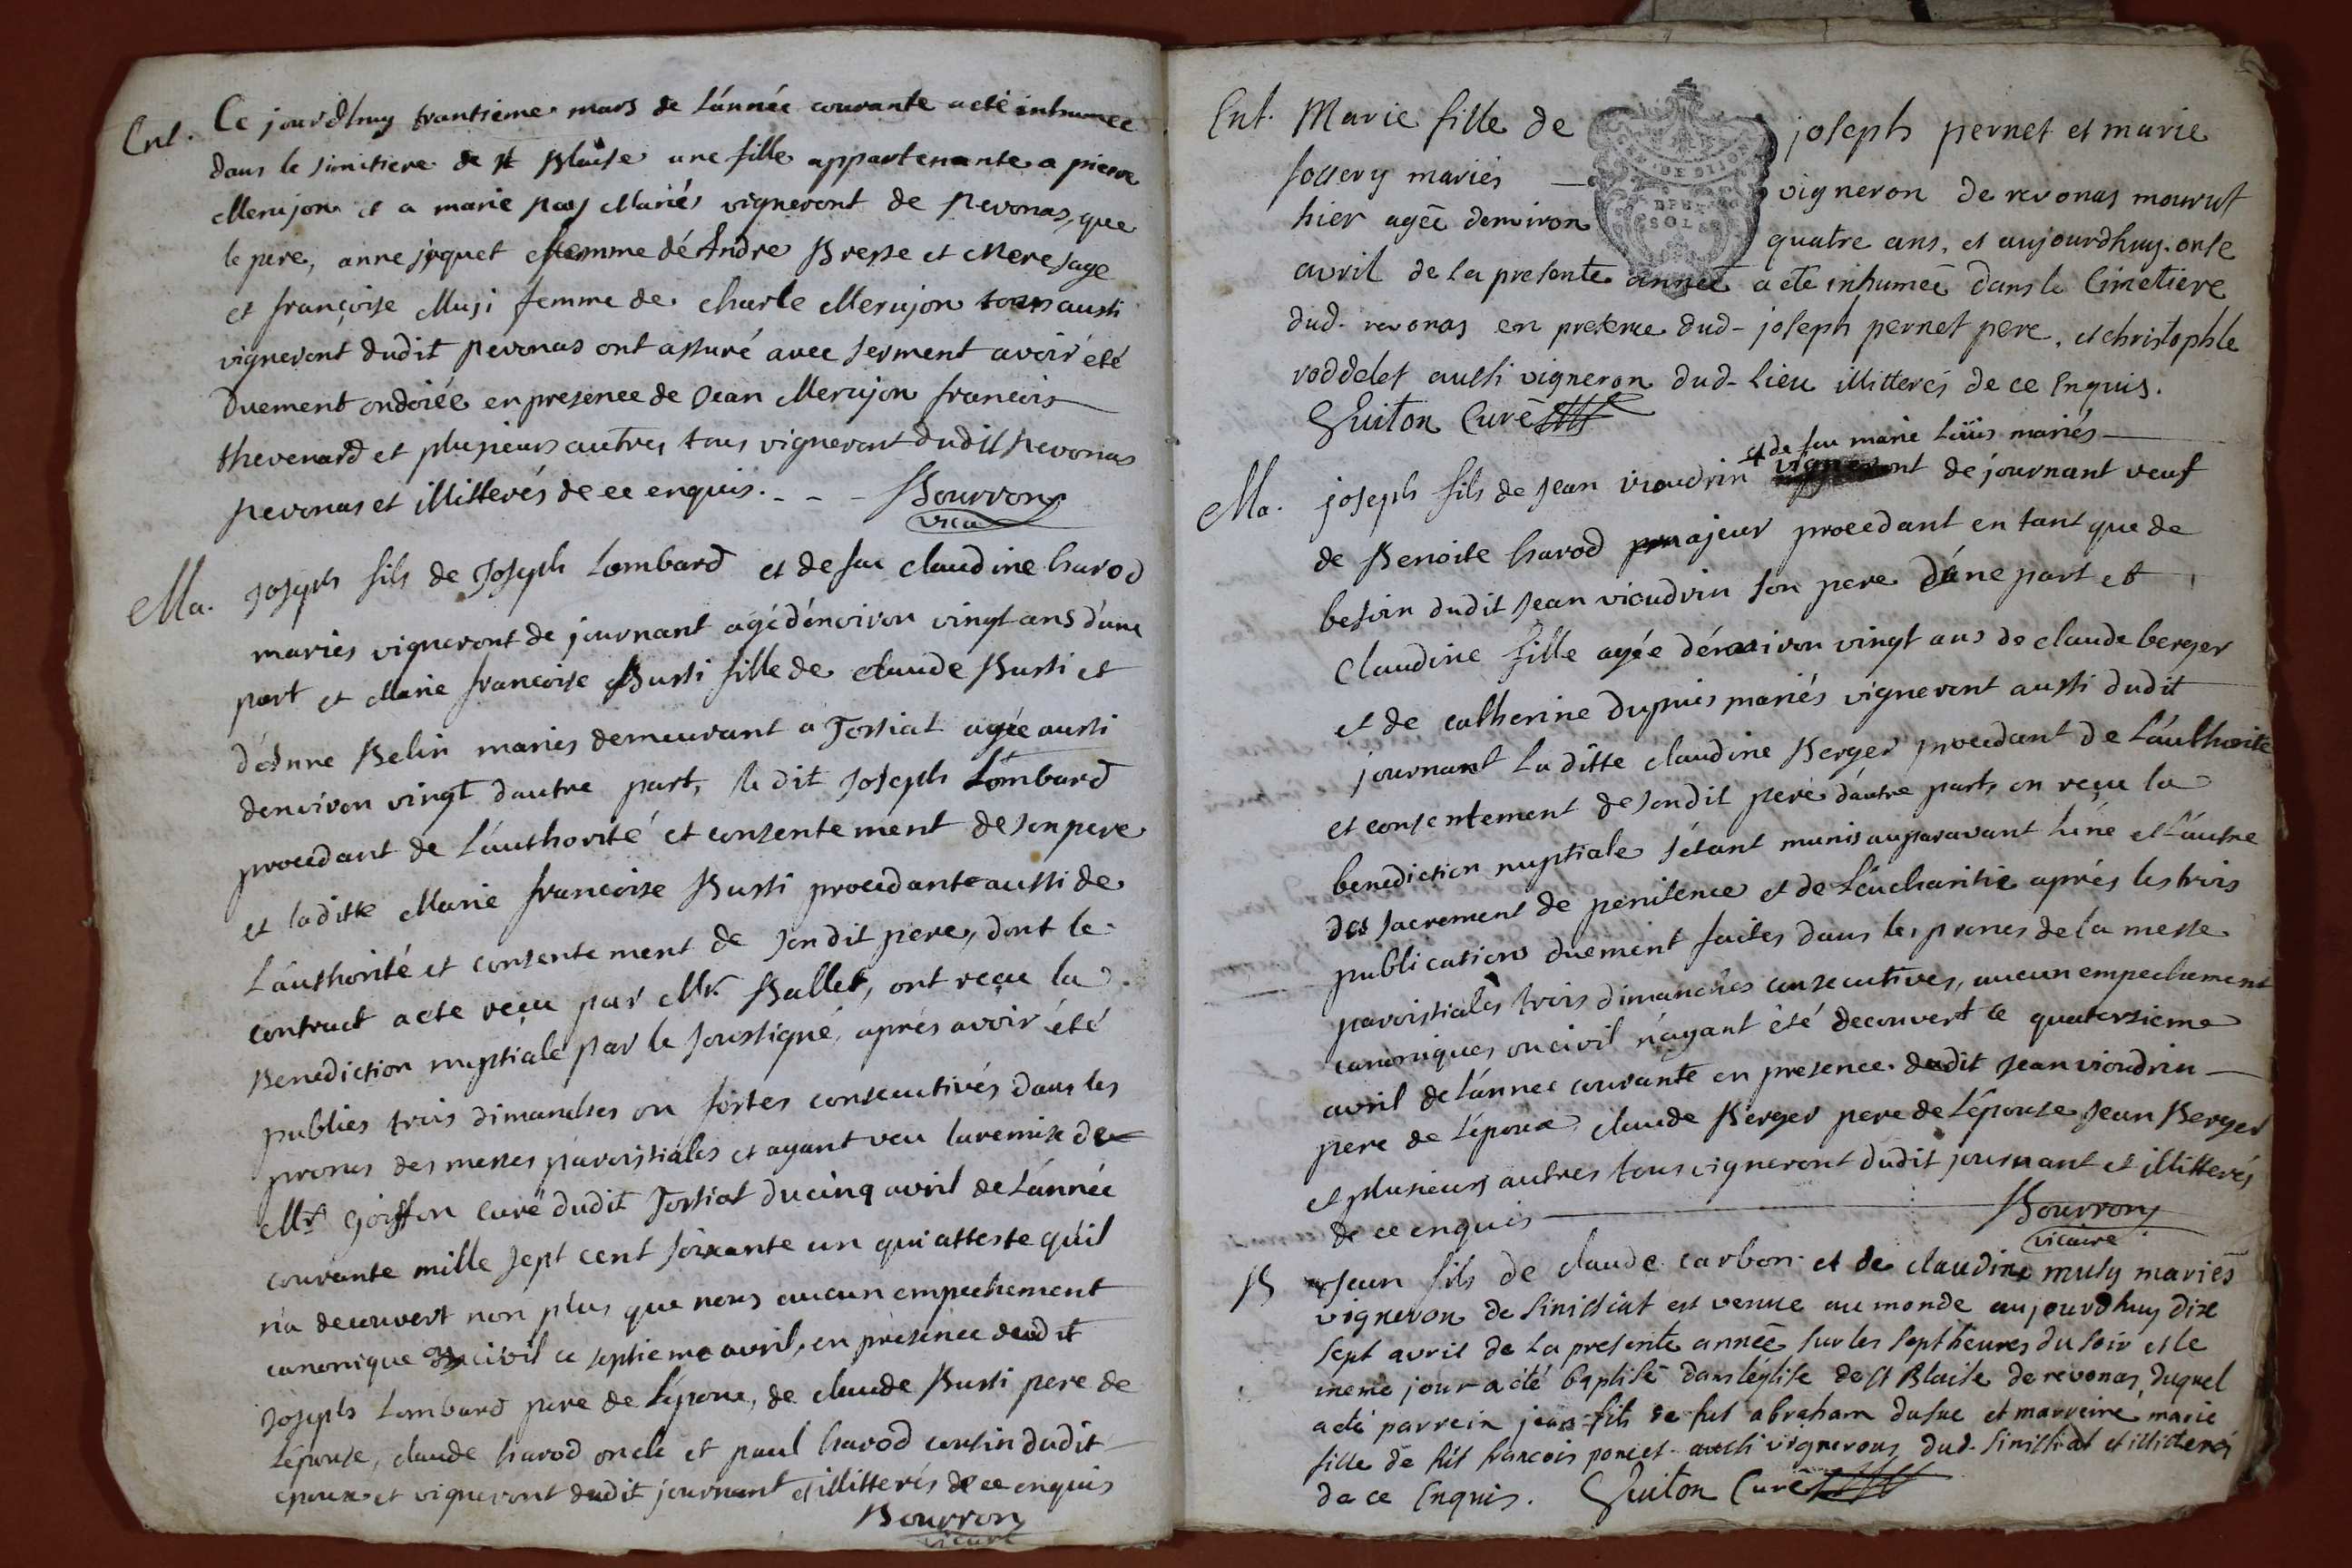 Ent. Ce jourdhuy trantieme mars de l'année courante a eté inhumee
dans le simitiere de st Blaise une fille appartenante a pierre
Merujon et a marie pay Mariés vigneront de revonas, que
le pere, anne jaquet femme dé Andre Bresse et Mere sage
et françoise Muji femme de charle Merujon tous aussi
vigneront dudit revonas ont assuré avec serment avoir été
duement ondoiée en presence de Jean Merujon francois
thevenard et plusieurs autres tous vigneront dudit revonas
revonas et illitterés de ce enquis. - - - Bourron
vica
Ma. Joseph fils de Joseph Lombard et de feu claudine havod
mariés vigneront de journant agé d'environ vingt ans d'une
part et Marie francoise Busti fille de claude Busti et
d'Anne Belin mariés demeurant a Tossiat agée aussi
denviron vingt dautre part, le dit Joseph Lombard
procedant de L'authorité et consentement de son pere
et laditte Marie francoise Busti procedante aussi de
L'authorité et consentement de son dit pere, dont le
contract acte reçu par Mr. Ballet, ont reçu la
Benediction nuptiale par le soussigné, aprés avoir été
publies trois dimanches ou festes consecutivés dans les
prones des messes paroistiales et ayant veu la remise de
Mr. Goiffon curé dudit Tossiat du cinq avril de l'année
courante mille sept cent soixante un qui atteste qu'il
n'a decouvert non plus que nous aucun empechement
canonique civil ce septieme avril, en presence dudit
Joseph Lombard pere de l'epoux, de claude Busti pere de
l'epouse, claude havod oncle et paul havod cousin dudit
epoux et vigneront dudit journant et illitterés de ce enquis
Bourron
vicaire
Ent. Marie fille de joseph pernet et marie
sossery mariés — vigneron de revonas mourut
hier agée denviron quatre ans, et aujourdhuy onse
avril de la presente année a eté inhumeé dans le Cimetiere
dud. revonas en presence dud- joseph pernet pere, et christophle
voddelet aussi vigneron dud- lieu illitterés de ce Enquis.
Guiton Curé
et de feu marie Loüis mariés
Ma. joseph fils de Jean vioudrin vigneront de journant veuf
de Benoite havod majeur procedant en tant que de
besoin dudit Jean vioudrin son pere d'une part et
Claudine fille agée d'environ vingt ans de claude berger
et de catherine dupuis mariés vigneront aussi dudit
journant La ditte claudine Berger procedant de L'authorite
et consentement de sondit pere d'autre part, on reçu la
benediction nuptiale s'etant munis auparavant l'une et l'autre
des sacrement de penitence et de L'eucharitie aprés les trois
publications duement faites dans les prones de la messe
paroistiales trois dimanches consecutives, aucun empechement
canoniques ou civil n'ayant été decouvert ce quatorsieme
avril de l'année courante en presence dudit Jean vioudrin
pere de L'epoux claude Berger pere de L'épouse Jean Berger
et plusieurs autres tous vigneront dudit journant et illitterés
de ce enquis Bourron
vicaire
B Jean fils de claude carbon et de claudine musy mariés
vigneron de Sinissiat est venue au monde aujourdhuy dix
sept avril de la presente année sur les sept heures du soir et le
meme jour a eté baptisé dans l'églite de st Blaise de revonas, duquel
a eté parrein jean fils de fut abraham dusuc et marreine marie
fille de fut francois poncet aussi vignerons dud- Sinissiat et illitterés
de ce Enquis. Guiton Curé